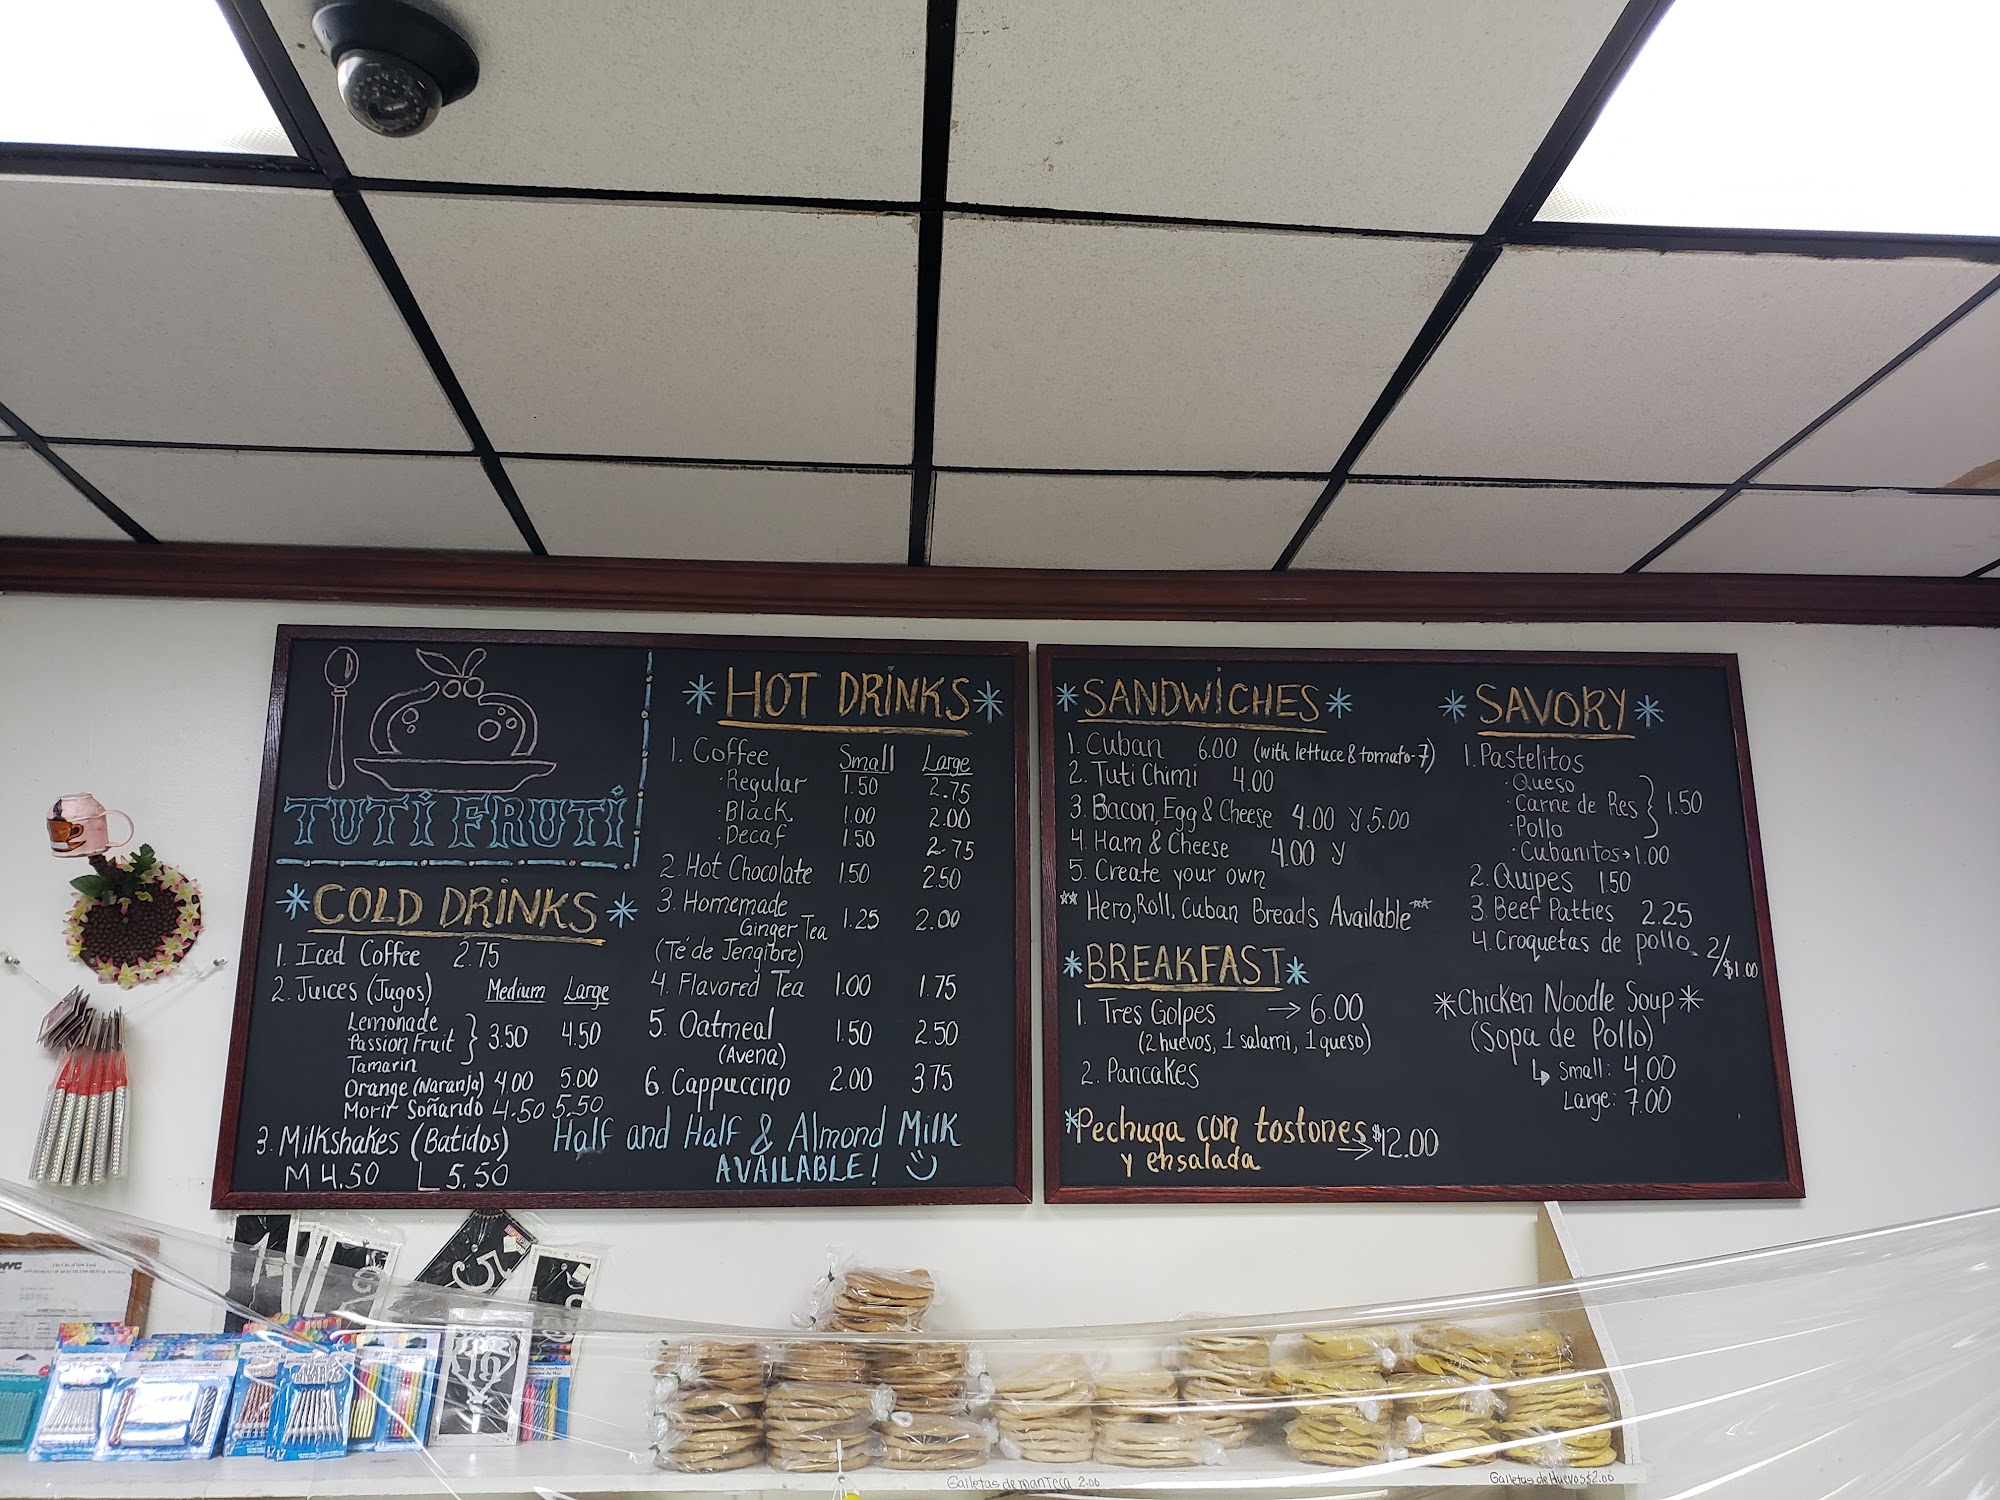 TUTI FRUTI
*COLD DRINKS*
1. Iced Coffee 2.75
2. Juices (Jugos) Medium Large
Lemonade
Passion Fruit } 3.50 4.50
Tamarin
Orange (Naranja) 4.00 5.00
Morir Soñando 4.50 5.50
3. Milkshakes (Batidos)
M 4.50 L 5.50
*HOT DRINKS*
1. Coffee Small Large
·Regular 1.50 2.75
·Black 1.00 2.00
·Decaf 1.50 2.75
2. Hot Chocolate 1.50 2.50
3. Homemade
Ginger Tea 1.25 2.00
(Té de Jengibre)
4. Flavored Tea 1.00 1.75
5. Oatmeal 1.50 2.50
(Avena)
6. Cappuccino 2.00 3.75
Half and Half & Almond Milk
AVAILABLE!
*SANDWICHES*
1. Cuban 6.00 (with lettuce & tomato-7)
2. Tuti Chimi 4.00
3. Bacon, Egg & Cheese 4.00 y 5.00
4. Ham & Cheese 4.00 y
5. Create your own
** Hero, Roll, Cuban Breads Available **
*BREAKFAST*
1. Tres Golpes → 6.00
(2 huevos, 1 salami, 1 queso)
2. Pancakes
*Pechuga con tostones
y ensalada → $12.00
*SAVORY*
1. Pastelitos
·Queso
·Carne de Res } 1.50
·Pollo
·Cubanitos → 1.00
2. Quipes 1.50
3. Beef Patties 2.25
4. Croquetas de pollo 2/$1.00
*Chicken Noodle Soup*
(Sopa de Pollo)
↳ Small: 4.00
Large: 7.00
Galletas de manteca 2.00
Galletas de Huevos $2.00